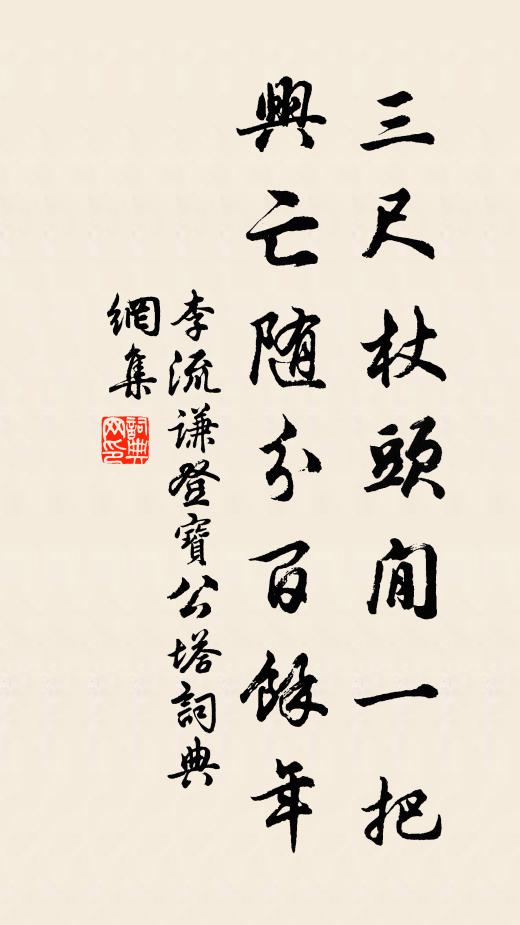 三尺杖頭閒一把
興亡随分百餘年
李流謙登寶公塔詞典
網集
詞典網印